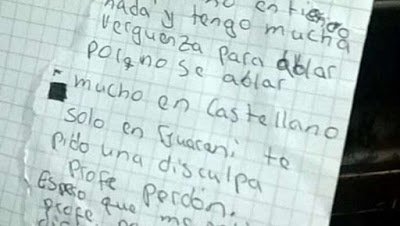 no entiendo
nada y tengo mucha
verguenza para ablar
porq no se ablar
- mucho en Castellano
solo en Guarani te
pido una disculpa
Profe perdón.
Espero que me
profe